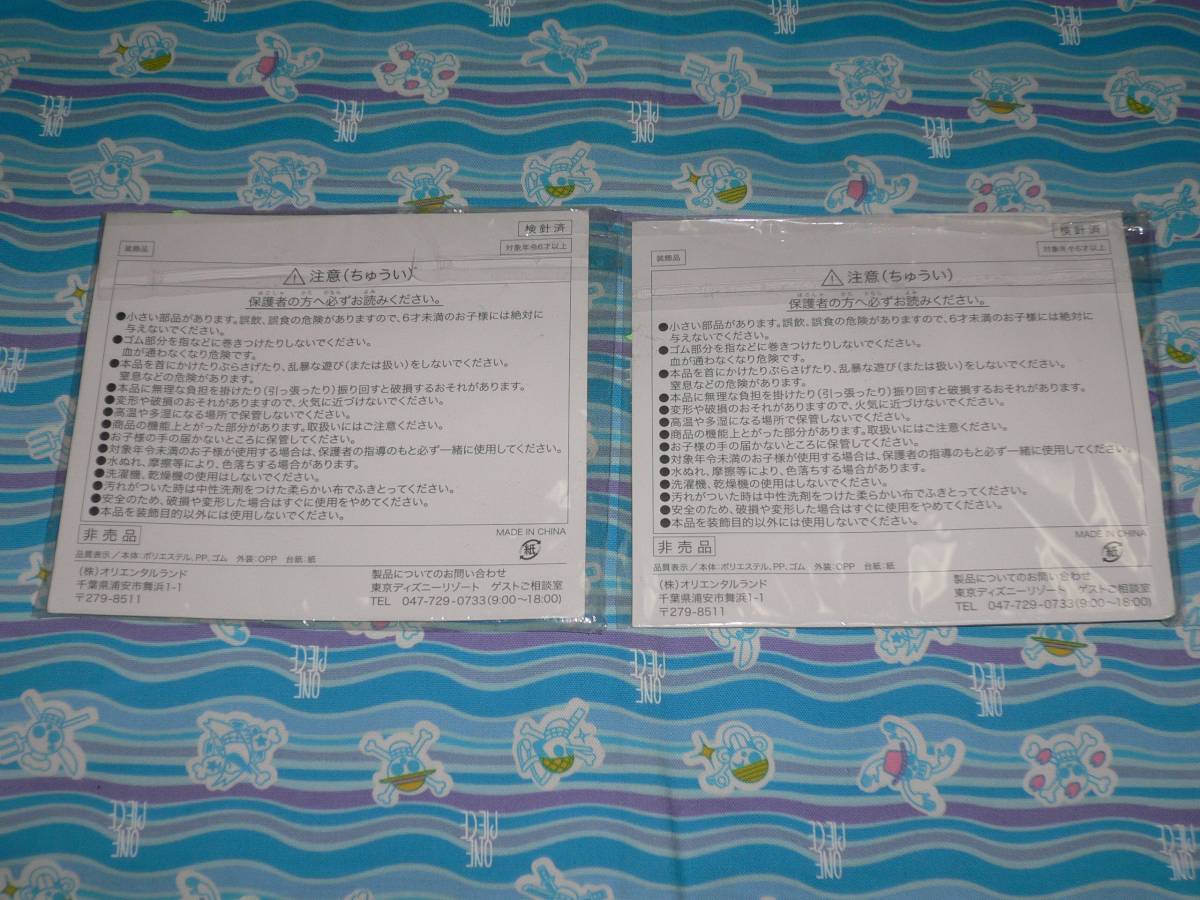 検針済
装飾品
対象年令6才以上
注意(ちゅうい)
ほごしゃ かた かなら よみ
保護者の方へ必ずお読みください。
●小さい部品があります。誤飲、誤食の危険がありますので、6才未満のお子様には絶対に
与えないでください。
●ゴム部分を指などに巻きつけたりしないでください。
血が通わなくなり危険です。
●本品を首にかけたりぶらさげたり、乱暴な遊び(または扱い)をしないでください。
窒息などの危険があります。
●本品に無理な負担を掛けたり(引っ張ったり)振り回すと破損するおそれがあります。
●変形や破損のおそれがありますので、火気に近づけないでください。
●高温や多湿になる場所で保管しないでください。
●商品の機能上とがった部分があります。取扱いにはご注意ください。
●お子様の手の届かないところに保管してください。
●対象年令未満のお子様が使用する場合は、保護者の指導のもと必ず一緒に使用してください。
●水ぬれ、摩擦等により、色落ちする場合があります。
●洗濯機、乾燥機の使用はしないでください。
●汚れがついた時は中性洗剤をつけた柔らかい布でふきとってください。
●安全のため、破損や変形した場合はすぐに使用をやめてください。
●本品を装飾目的以外には使用しないでください。
非売品
MADE IN CHINA
紙
品質表示/本体:ポリエステル、PP、ゴム 外装:OPP 台紙:紙
(株)オリエンタルランド
千葉県浦安市舞浜1-1
〒279-8511
製品についてのお問い合わせ
東京ディズニーリゾート ゲストご相談室
TEL 047-729-0733(9:00~18:00)
検針済
装飾品
対象年令6才以上
注意(ちゅうい)
ほごしゃ かた かなら よみ
保護者の方へ必ずお読みください。
●小さい部品があります。誤飲、誤食の危険がありますので、6才未満のお子様には絶対に
与えないでください。
●ゴム部分を指などに巻きつけたりしないでください。
血が通わなくなり危険です。
●本品を首にかけたりぶらさげたり、乱暴な遊び(または扱い)をしないでください。
窒息などの危険があります。
●本品に無理な負担を掛けたり(引っ張ったり)振り回すと破損するおそれがあります。
●変形や破損のおそれがありますので、火気に近づけないでください。
●高温や多湿になる場所で保管しないでください。
●商品の機能上とがった部分があります。取扱いにはご注意ください。
●お子様の手の届かないところに保管してください。
●対象年令未満のお子様が使用する場合は、保護者の指導のもと必ず一緒に使用してください。
●水ぬれ、摩擦等により、色落ちする場合があります。
●洗濯機、乾燥機の使用はしないでください。
●汚れがついた時は中性洗剤をつけた柔らかい布でふきとってください。
●安全のため、破損や変形した場合はすぐに使用をやめてください。
●本品を装飾目的以外には使用しないでください。
非売品
MADE IN CHINA
紙
品質表示/本体:ポリエステル、PP、ゴム 外装:OPP 台紙:紙
(株)オリエンタルランド
千葉県浦安市舞浜1-1
〒279-8511
製品についてのお問い合わせ
東京ディズニーリゾート ゲストご相談室
TEL 047-729-0733(9:00~18:00)
ONE
PIECE
ONE
PIECE
ONE
PIECE
ONE
PIECE
ONE
PIECE
ONE
PIECE
ONE
PIECE
ONE
PIECE
ONE
PIECE
ONE
PIECE